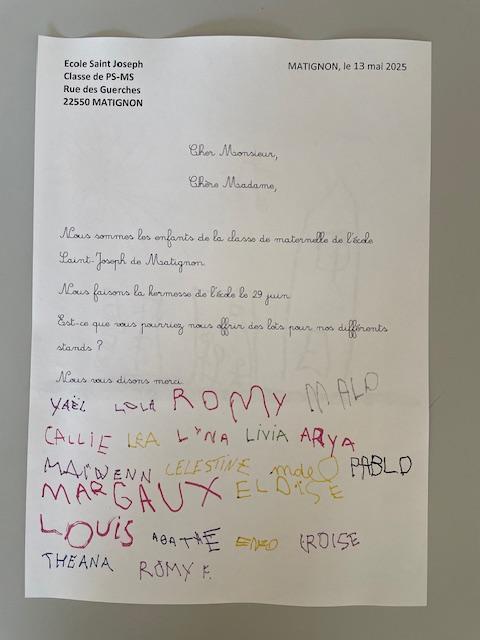 Ecole Saint Joseph
Classe de PS-MS
Rue des Guerches
22550 MATIGNON
MATIGNON, le 13 mai 2025
Cher Monsieur,
Chère Madame,
Nous sommes les enfants de la classe de maternelle de l'école
Saint-Joseph de Matignon.
Nous faisons la kermesse de l'école le 29 juin.
Est-ce que vous pourriez nous offrir des lots pour nos différents
stands ?
Nous vous disons merci.
YAËL LOLA ROMY MALO
CALLIE LEA LYNA LIVIA ARYA
MAÏWENN CELESTINE PABLO
MARGAUX ELOISE
LOUIS AGATHE ENZO IROISE
THEANA ROMY F.